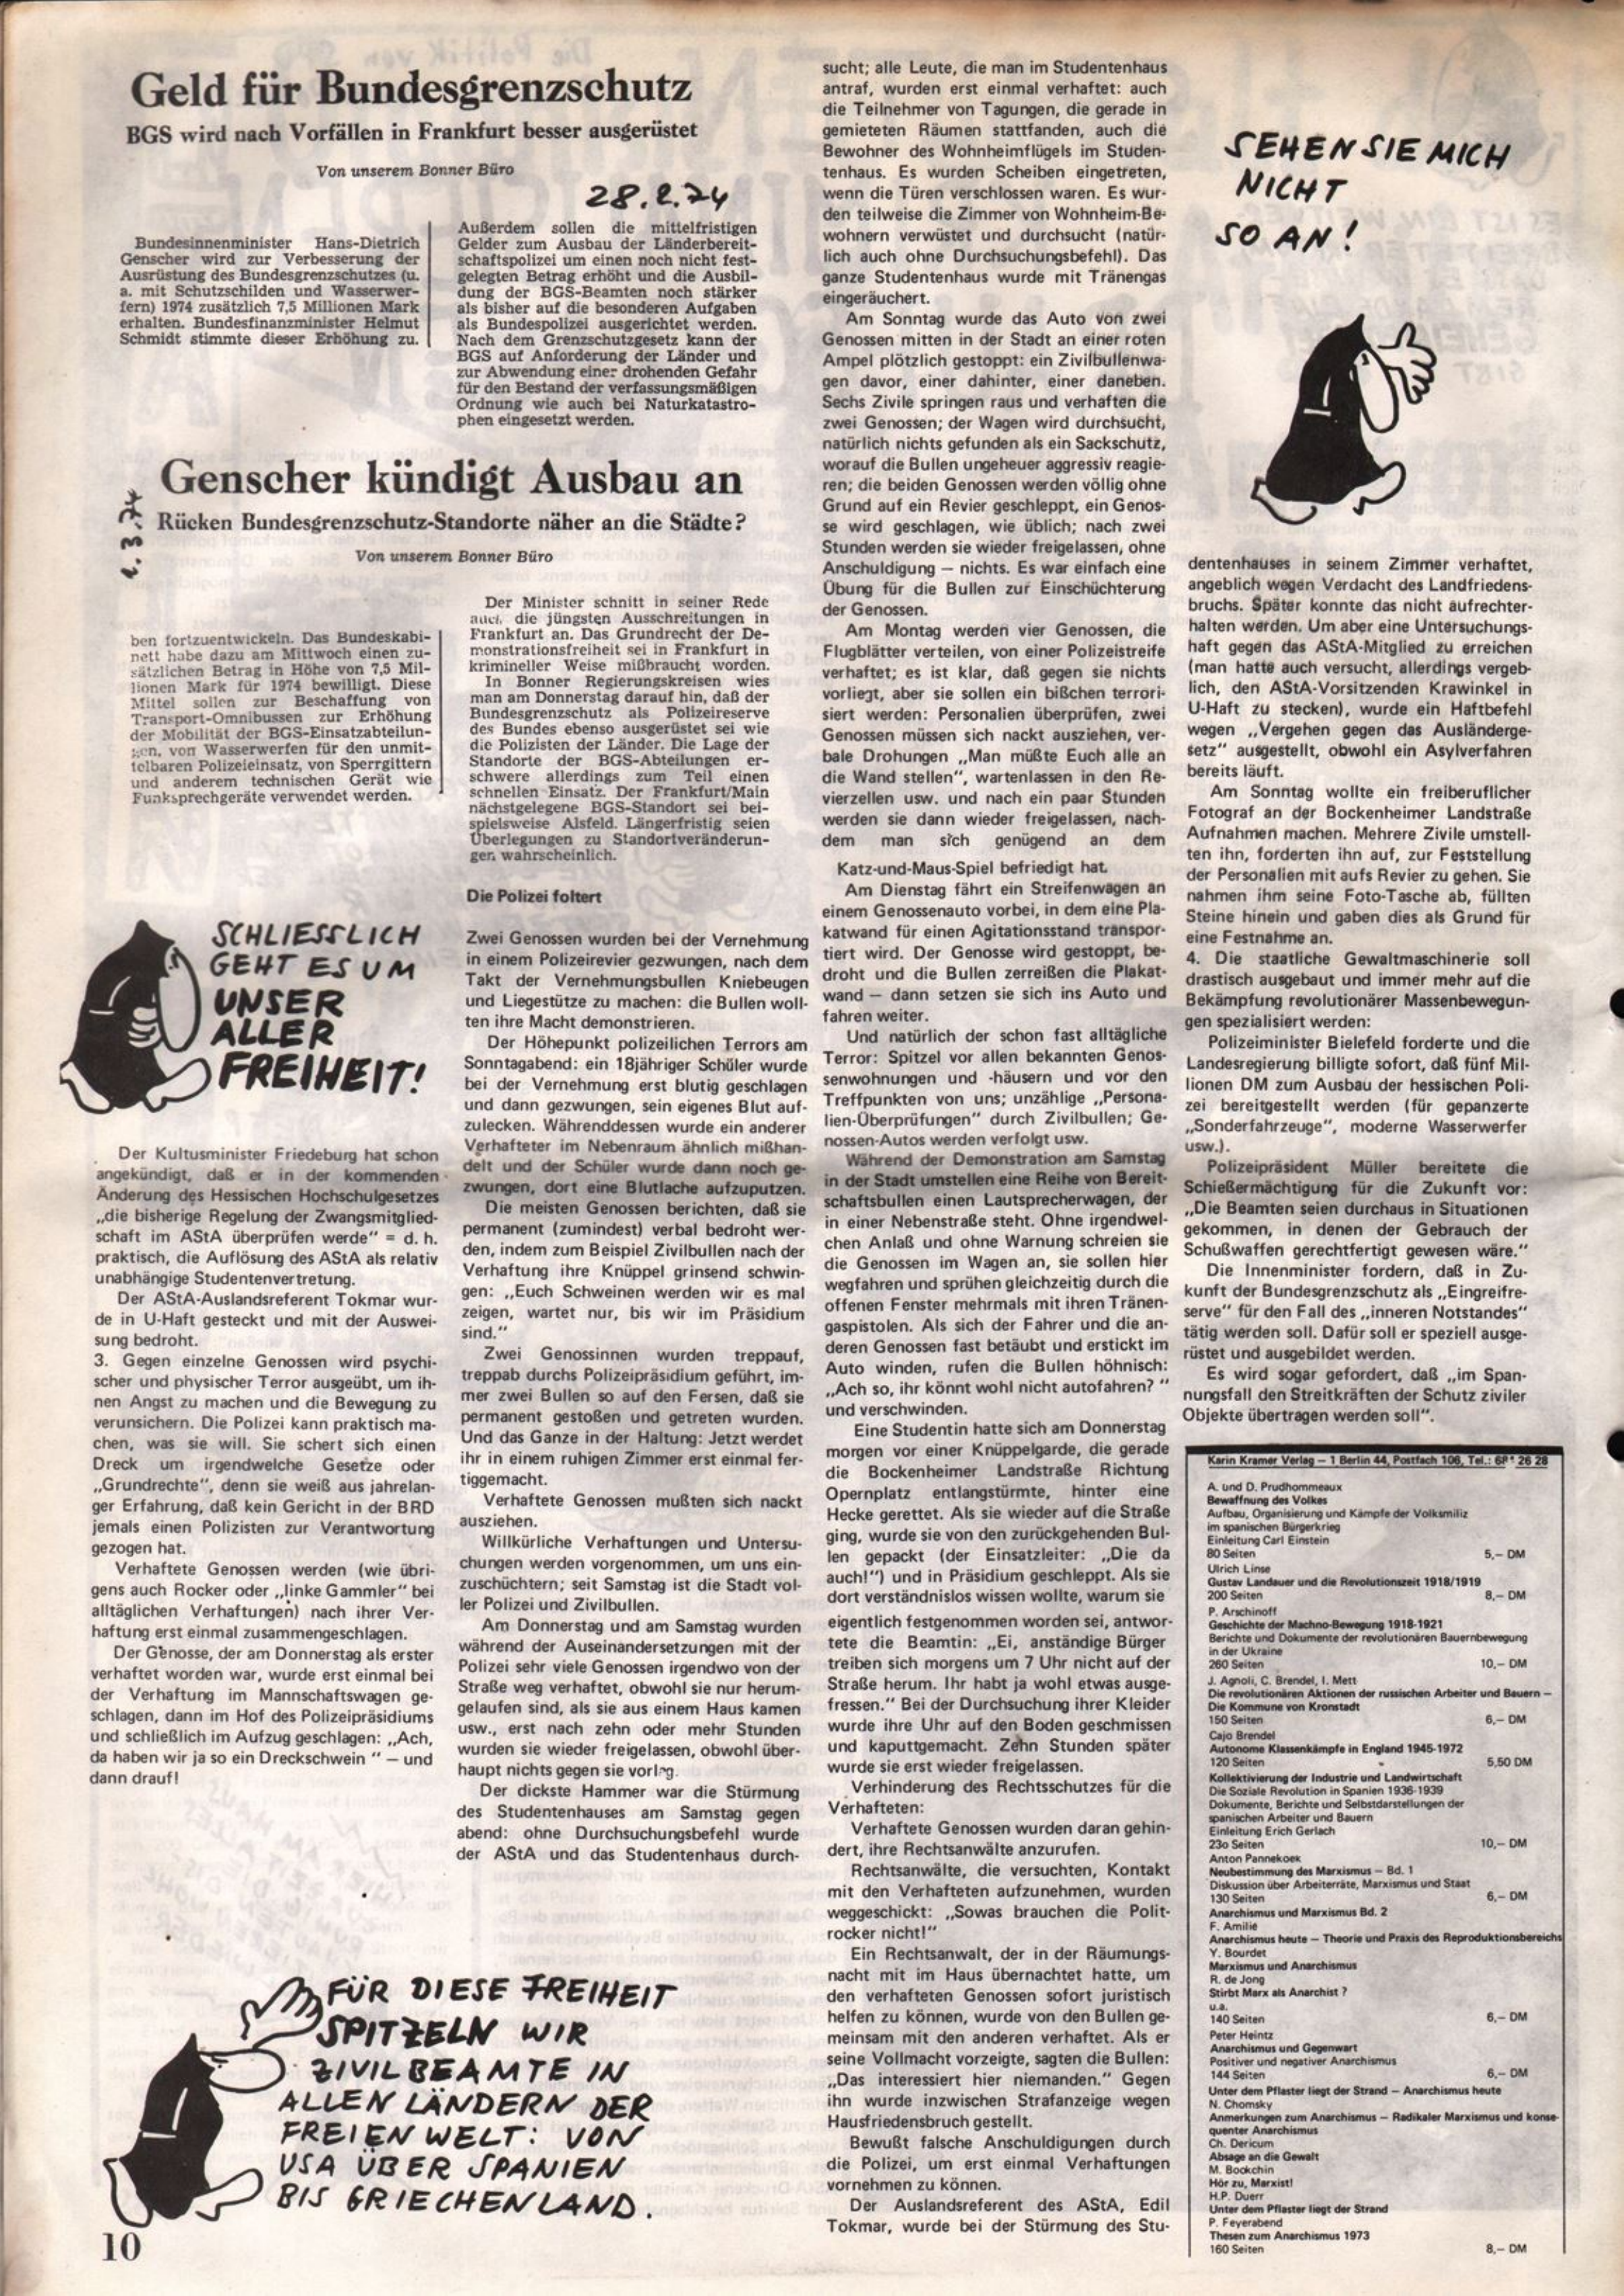 Geld für Bundesgrenzschutz
BGS wird nach Vorfällen in Frankfurt besser ausgerüstet
Von unserem Bonner Büro
28.2.74
Bundesinnenminister Hans-Dietrich
Genscher wird zur Verbesserung der
Ausrüstung des Bundesgrenzschutzes (u.
a. mit Schutzschilden und Wasserwer-
fern) 1974 zusätzlich 7,5 Millionen Mark
erhalten. Bundesfinanzminister Helmut
Schmidt stimmte dieser Erhöhung zu.
Außerdem sollen die mittelfristigen
Gelder zum Ausbau der Länderbereit-
schaftspolizei um einen noch nicht fest-
gelegten Betrag erhöht und die Ausbil-
dung der BGS-Beamten noch stärker
als bisher auf die besonderen Aufgaben
als Bundespolizei ausgerichtet werden.
Nach dem Grenzschutzgesetz kann der
BGS auf Anforderung der Länder und
zur Abwendung einer drohenden Gefahr
für den Bestand der verfassungsmäßigen
Ordnung wie auch bei Naturkatastro-
phen eingesetzt werden.
Genscher kündigt Ausbau an
1.3.74
Rücken Bundesgrenzschutz-Standorte näher an die Städte?
Von unserem Bonner Büro
ben fortzuentwickeln. Das Bundeskabi-
nett habe dazu am Mittwoch einen zu-
sätzlichen Betrag in Höhe von 7,5 Mil-
lionen Mark für 1974 bewilligt. Diese
Mittel sollen zur Beschaffung von
Transport-Omnibussen zur Erhöhung
der Mobilität der BGS-Einsatzabteilun-
gen, von Wasserwerfen für den unmit-
telbaren Polizeieinsatz, von Sperrgittern
und anderem technischen Gerät wie
Funksprechgeräte verwendet werden.
Der Minister schnitt in seiner Rede
auch die jüngsten Ausschreitungen in
Frankfurt an. Das Grundrecht der De-
monstrationsfreiheit sei in Frankfurt in
krimineller Weise mißbraucht worden.
In Bonner Regierungskreisen wies
man am Donnerstag darauf hin, daß der
Bundesgrenzschutz als Polizeireserve
des Bundes ebenso ausgerüstet sei wie
die Polizisten der Länder. Die Lage der
Standorte der BGS-Abteilungen er-
schwere allerdings zum Teil einen
schnellen Einsatz. Der Frankfurt/Main
nächstgelegene BGS-Standort sei bei-
spielsweise Alsfeld. Längerfristig seien
Überlegungen zu Standortveränderun-
gen wahrscheinlich.
SCHLIESSLICH
GEHT ES UM
UNSER
ALLER
FREIHEIT!
Der Kultusminister Friedeburg hat schon
angekündigt, daß er in der kommenden
Änderung des Hessischen Hochschulgesetzes
„die bisherige Regelung der Zwangsmitglied-
schaft im AStA überprüfen werde“ = d. h.
praktisch, die Auflösung des AStA als relativ
unabhängige Studentenvertretung.
Der AStA-Auslandsreferent Tokmar wur-
de in U-Haft gesteckt und mit der Auswei-
sung bedroht.
3. Gegen einzelne Genossen wird psychi-
scher und physischer Terror ausgeübt, um ih-
nen Angst zu machen und die Bewegung zu
verunsichern. Die Polizei kann praktisch ma-
chen, was sie will. Sie schert sich einen
Dreck um irgendwelche Gesetze oder
„Grundrechte“, denn sie weiß aus jahrelan-
ger Erfahrung, daß kein Gericht in der BRD
jemals einen Polizisten zur Verantwortung
gezogen hat.
Verhaftete Genossen werden (wie übri-
gens auch Rocker oder „linke Gammler“ bei
alltäglichen Verhaftungen) nach ihrer Ver-
haftung erst einmal zusammengeschlagen.
Der Genosse, der am Donnerstag als erster
verhaftet worden war, wurde erst einmal bei
der Verhaftung im Mannschaftswagen ge-
schlagen, dann im Hof des Polizeipräsidiums
und schließlich im Aufzug geschlagen: „Ach,
da haben wir ja so ein Dreckschwein “ — und
dann drauf!
Die Polizei foltert
Zwei Genossen wurden bei der Vernehmung
in einem Polizeirevier gezwungen, nach dem
Takt der Vernehmungsbullen Kniebeugen
und Liegestütze zu machen: die Bullen woll-
ten ihre Macht demonstrieren.
Der Höhepunkt polizeilichen Terrors am
Sonntagabend: ein 18jähriger Schüler wurde
bei der Vernehmung erst blutig geschlagen
und dann gezwungen, sein eigenes Blut auf-
zulecken. Währenddessen wurde ein anderer
Verhafteter im Nebenraum ähnlich mißhan-
delt und der Schüler wurde dann noch ge-
zwungen, dort eine Blutlache aufzuputzen.
Die meisten Genossen berichten, daß sie
permanent (zumindest) verbal bedroht wer-
den, indem zum Beispiel Zivilbullen nach der
Verhaftung ihre Knüppel grinsend schwin-
gen: „Euch Schweinen werden wir es mal
zeigen, wartet nur, bis wir im Präsidium
sind.“
Zwei Genossinnen wurden treppauf,
treppab durchs Polizeipräsidium geführt, im-
mer zwei Bullen so auf den Fersen, daß sie
permanent gestoßen und getreten wurden.
Und das Ganze in der Haltung: Jetzt werdet
ihr in einem ruhigen Zimmer erst einmal fer-
tiggemacht.
Verhaftete Genossen mußten sich nackt
ausziehen.
Willkürliche Verhaftungen und Untersu-
chungen werden vorgenommen, um uns ein-
zuschüchtern; seit Samstag ist die Stadt vol-
ler Polizei und Zivilbullen.
Am Donnerstag und am Samstag wurden
während der Auseinandersetzungen mit der
Polizei sehr viele Genossen irgendwo von der
Straße weg verhaftet, obwohl sie nur herum-
gelaufen sind, als sie aus einem Haus kamen
usw., erst nach zehn oder mehr Stunden
wurden sie wieder freigelassen, obwohl über-
haupt nichts gegen sie vorlag.
Der dickste Hammer war die Stürmung
des Studentenhauses am Samstag gegen
abend: ohne Durchsuchungsbefehl wurde
der AStA und das Studentenhaus durch-
FÜR DIESE FREIHEIT
SPITZELN WIR
ZIVILBEAMTE IN
ALLEN LÄNDERN DER
FREIEN WELT: VON
USA ÜBER SPANIEN
BIS GRIECHENLAND.
10
sucht; alle Leute, die man im Studentenhaus
antraf, wurden erst einmal verhaftet: auch
die Teilnehmer von Tagungen, die gerade in
gemieteten Räumen stattfanden, auch die
Bewohner des Wohnheimflügels im Studen-
tenhaus. Es wurden Scheiben eingetreten,
wenn die Türen verschlossen waren. Es wur-
den teilweise die Zimmer von Wohnheim-Be-
wohnern verwüstet und durchsucht (natür-
lich auch ohne Durchsuchungsbefehl). Das
ganze Studentenhaus wurde mit Tränengas
eingeräuchert.
Am Sonntag wurde das Auto von zwei
Genossen mitten in der Stadt an einer roten
Ampel plötzlich gestoppt: ein Zivilbullenwa-
gen davor, einer dahinter, einer daneben.
Sechs Zivile springen raus und verhaften die
zwei Genossen; der Wagen wird durchsucht,
natürlich nichts gefunden als ein Sackschutz,
worauf die Bullen ungeheuer aggressiv reagie-
ren; die beiden Genossen werden völlig ohne
Grund auf ein Revier geschleppt, ein Genos-
se wird geschlagen, wie üblich; nach zwei
Stunden werden sie wieder freigelassen, ohne
Anschuldigung — nichts. Es war einfach eine
Übung für die Bullen zur Einschüchterung
der Genossen.
Am Montag werden vier Genossen, die
Flugblätter verteilen, von einer Polizeistreife
verhaftet; es ist klar, daß gegen sie nichts
vorliegt, aber sie sollen ein bißchen terrori-
siert werden: Personalien überprüfen, zwei
Genossen müssen sich nackt ausziehen, ver-
bale Drohungen „Man müßte Euch alle an
die Wand stellen“, wartenlassen in den Re-
vierzellen usw. und nach ein paar Stunden
werden sie dann wieder freigelassen, nach-
dem man sich genügend an dem
Katz-und-Maus-Spiel befriedigt hat.
Am Dienstag fährt ein Streifenwagen an
einem Genossenauto vorbei, in dem eine Pla-
katwand für einen Agitationsstand transpor-
tiert wird. Der Genosse wird gestoppt, be-
droht und die Bullen zerreißen die Plakat-
wand — dann setzen sie sich ins Auto und
fahren weiter.
Und natürlich der schon fast alltägliche
Terror: Spitzel vor allen bekannten Genos-
senwohnungen und -häusern und vor den
Treffpunkten von uns; unzählige „Persona-
lien-Überprüfungen“ durch Zivilbullen; Ge-
nossen-Autos werden verfolgt usw.
Während der Demonstration am Samstag
in der Stadt umstellen eine Reihe von Bereit-
schaftsbullen einen Lautsprecherwagen, der
in einer Nebenstraße steht. Ohne irgendwel-
chen Anlaß und ohne Warnung schreien sie
die Genossen im Wagen an, sie sollen hier
wegfahren und sprühen gleichzeitig durch die
offenen Fenster mehrmals mit ihren Tränen-
gaspistolen. Als sich der Fahrer und die an-
deren Genossen fast betäubt und erstickt im
Auto winden, rufen die Bullen höhnisch:
„Ach so, ihr könnt wohl nicht autofahren? “
und verschwinden.
Eine Studentin hatte sich am Donnerstag
morgen vor einer Knüppelgarde, die gerade
die Bockenheimer Landstraße Richtung
Opernplatz entlangstürmte, hinter eine
Hecke gerettet. Als sie wieder auf die Straße
ging, wurde sie von den zurückgehenden Bul-
len gepackt (der Einsatzleiter: „Die da
auch!“) und in Präsidium geschleppt. Als sie
dort verständnislos wissen wollte, warum sie
eigentlich festgenommen worden sei, antwor-
tete die Beamtin: „Ei, anständige Bürger
treiben sich morgens um 7 Uhr nicht auf der
Straße herum. Ihr habt ja wohl etwas ausge-
fressen.“ Bei der Durchsuchung ihrer Kleider
wurde ihre Uhr auf den Boden geschmissen
und kaputtgemacht. Zehn Stunden später
wurde sie erst wieder freigelassen.
Verhinderung des Rechtsschutzes für die
Verhafteten:
Verhaftete Genossen wurden daran gehin-
dert, ihre Rechtsanwälte anzurufen.
Rechtsanwälte, die versuchten, Kontakt
mit den Verhafteten aufzunehmen, wurden
weggeschickt: „Sowas brauchen die Polit-
rocker nicht!“
Ein Rechtsanwalt, der in der Räumungs-
nacht mit im Haus übernachtet hatte, um
den verhafteten Genossen sofort juristisch
helfen zu können, wurde von den Bullen ge-
meinsam mit den anderen verhaftet. Als er
seine Vollmacht vorzeigte, sagten die Bullen:
„Das interessiert hier niemanden.“ Gegen
ihn wurde inzwischen Strafanzeige wegen
Hausfriedensbruch gestellt.
Bewußt falsche Anschuldigungen durch
die Polizei, um erst einmal Verhaftungen
vornehmen zu können.
Der Auslandsreferent des AStA, Edil
Tokmar, wurde bei der Stürmung des Stu-
SEHEN SIE MICH
NICHT
SO AN!
dentenhauses in seinem Zimmer verhaftet,
angeblich wegen Verdacht des Landfriedens-
bruchs. Später konnte das nicht aufrechter-
halten werden. Um aber eine Untersuchungs-
haft gegen das AStA-Mitglied zu erreichen
(man hatte auch versucht, allerdings vergeb-
lich, den AStA-Vorsitzenden Krawinkel in
U-Haft zu stecken), wurde ein Haftbefehl
wegen „Vergehen gegen das Ausländerge-
setz“ ausgestellt, obwohl ein Asylverfahren
bereits läuft.
Am Sonntag wollte ein freiberuflicher
Fotograf an der Bockenheimer Landstraße
Aufnahmen machen. Mehrere Zivile umstell-
ten ihn, forderten ihn auf, zur Feststellung
der Personalien mit aufs Revier zu gehen. Sie
nahmen ihm seine Foto-Tasche ab, füllten
Steine hinein und gaben dies als Grund für
eine Festnahme an.
4. Die staatliche Gewaltmaschinerie soll
drastisch ausgebaut und immer mehr auf die
Bekämpfung revolutionärer Massenbewegun-
gen spezialisiert werden:
Polizeiminister Bielefeld forderte und die
Landesregierung billigte sofort, daß fünf Mil-
lionen DM zum Ausbau der hessischen Poli-
zei bereitgestellt werden (für gepanzerte
„Sonderfahrzeuge“, moderne Wasserwerfer
usw.).
Polizeipräsident Müller bereitete die
Schießermächtigung für die Zukunft vor:
„Die Beamten seien durchaus in Situationen
gekommen, in denen der Gebrauch der
Schußwaffen gerechtfertigt gewesen wäre.“
Die Innenminister fordern, daß in Zu-
kunft der Bundesgrenzschutz als „Eingreifre-
serve“ für den Fall des „inneren Notstandes“
tätig werden soll. Dafür soll er speziell ausge-
rüstet und ausgebildet werden.
Es wird sogar gefordert, daß „im Span-
nungsfall den Streitkräften der Schutz ziviler
Objekte übertragen werden soll“.
Karin Kramer Verlag — 1 Berlin 44, Postfach 106, Tel.: 26 28
A. und D. Prudhommeaux
Bewaffnung des Volkes
Aufbau, Organisierung und Kämpfe der Volksmiliz
im spanischen Bürgerkrieg
Einleitung Carl Einstein
80 Seiten 5,— DM
Ulrich Linse
Gustav Landauer und die Revolutionszeit 1918/1919
200 Seiten 8,— DM
P. Arschinoff
Geschichte der Machno-Bewegung 1918-1921
Berichte und Dokumente der revolutionären Bauernbewegung
in der Ukraine
260 Seiten 10,— DM
J. Agnoli, C. Brendel, I. Mett
Die revolutionären Aktionen der russischen Arbeiter und Bauern —
Die Kommune von Kronstadt
150 Seiten 6,— DM
Cajo Brendel
Autonome Klassenkämpfe in England 1945-1972
120 Seiten 5,50 DM
Kollektivierung der Industrie und Landwirtschaft
Die Soziale Revolution in Spanien 1936-1939
Dokumente, Berichte und Selbstdarstellungen der
spanischen Arbeiter und Bauern
Einleitung Erich Gerlach
23o Seiten 10,— DM
Anton Pannekoek
Neubestimmung des Marxismus — Bd. 1
Diskussion über Arbeiterräte, Marxismus und Staat
130 Seiten 6,— DM
Anarchismus und Marxismus Bd. 2
F. Amilie
Anarchismus heute — Theorie und Praxis des Reproduktionsbereichs
Y. Bourdet
Marxismus und Anarchismus
R. de Jong
Stirbt Marx als Anarchist ?
u.a.
140 Seiten 6,— DM
Peter Heintz
Anarchismus und Gegenwart
Positiver und negativer Anarchismus
144 Seiten 6,— DM
Unter dem Pflaster liegt der Strand — Anarchismus heute
N. Chomsky
Anmerkungen zum Anarchismus — Radikaler Marxismus und konse-
quenter Anarchismus
Ch. Dericum
Absage an die Gewalt
M. Bookchin
Hör zu, Marxist!
H.P. Duerr
Unter dem Pflaster liegt der Strand
P. Feyerabend
Thesen zum Anarchismus 1973
160 Seiten 8,— DM